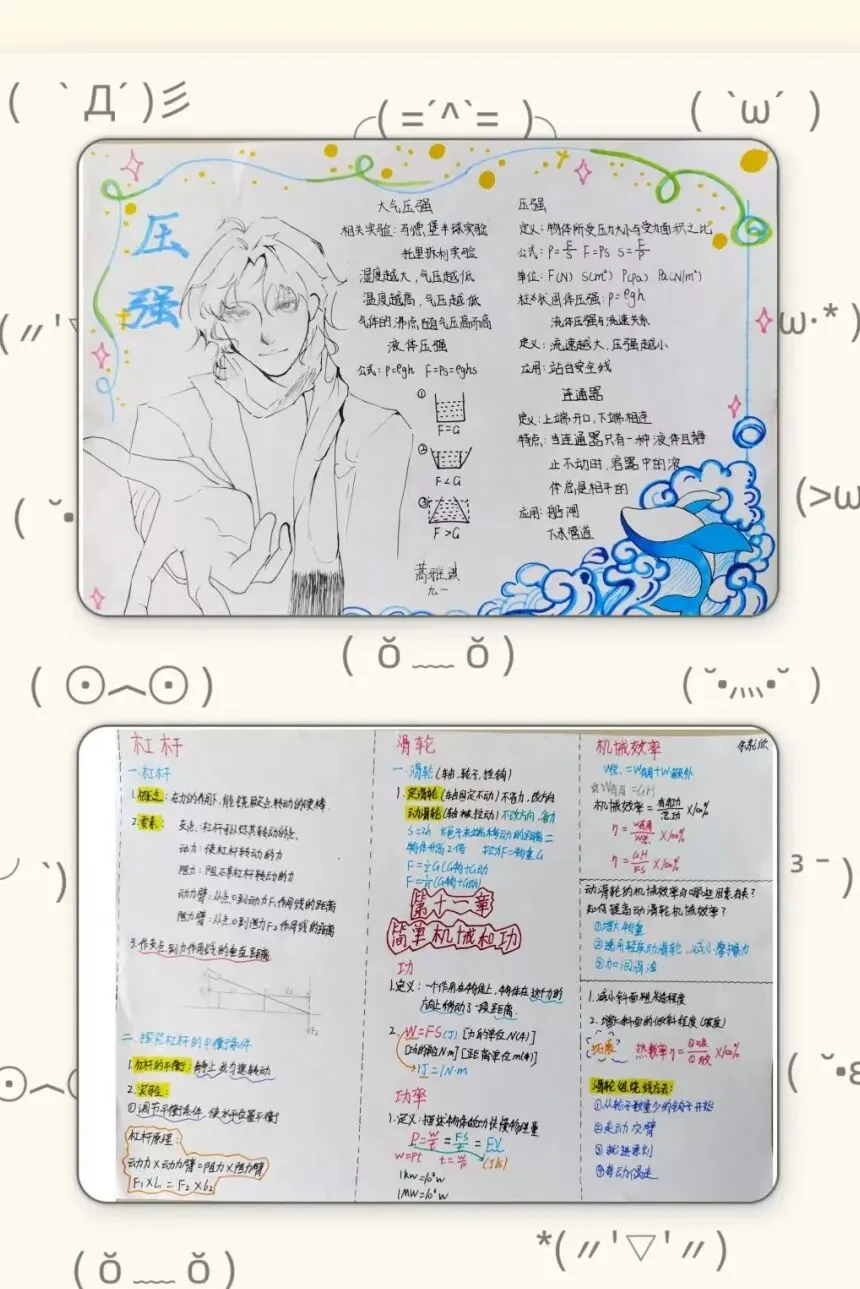 ( ` Д´ )彡
╭( =´^`= )╮
( `ω´ )
压强
大气压强
相关实验: 马德堡半球实验
托里拆利实验
湿度越大,气压越低
温度越高,气压越低
气体的沸点随气压高而高
液体压强
公式: P=ρgh F=PS=ρghs
①
F=G
②
F<G
③
F>G
九一
压强
定义: 物体所受压力大小与受力面积之比
公式: P=F/S F=PS S=F/P
单位: F(N) S(m²) P(Pa) Pa(N/m²)
柱状固体压强: P=ρgh
流体压强与流速关系
定义: 流速越大,压强越小
应用: 站台安全线
连通器
定义: 上端开口,下端相连
特点: 当连通器只有一种液体且静
止不动时,容器中的液
体总是相平的
应用: 船闸
下水管道
( ŏ﹏ŏ )
( ⊙︿⊙ )
杠杆
一.杠杆
1.概念: 在力的作用下,能绕固定点转动的硬棒.
2.要素: 支点: 杠杆可以绕其转动的点.
动力: 使杠杆转动的力
阻力: 阻碍杠杆转动的力
动力臂: 从点O到动力F₁作用线的距离
阻力臂: 从点O到阻力F₂作用线的距离
3.作支点到力作用线的垂直距离
F₂
二.探究杠杆的平衡条件
1.杠杆的平衡: 静止或匀速转动
2.实验:
①调节平衡条件,使水平位置平衡
杠杆原理:
动力×动力臂=阻力×阻力臂
F₁×L₁=F₂×L₂
滑轮
一.滑轮(轴,轮子,挂钩)
1.定滑轮(轴固定不动)不省力,改方向
动滑轮(轴被拉动)不改方向,省力
S=2h
F=½(G物+G动)
第十一章
简单机械和功
功
1.定义: 一个作用在物体上,物体在这个力的
方向上移动了一段距离.
2. W=FS(J) [力的单位N(牛)]
[功的单位N·m] [距离单位m(米)]
1J=1N·m
功率
1.定义: 描述物体做功快慢物理量
P=W/t=FS/t=FV
W=Pt t=W/P (J/s)
1kW=10³W
1MW=10⁶W
机械效率
W总=W有用+W额外
☆W有用=GH
机械效率=有用功/总功×100%
η=W有用/W总×100%
η=GH/FS×100%
动滑轮的机械效率与哪些因素有关?
如何提高动滑轮机械效率?
①增大物重
②选用轻质动滑轮,减小摩擦力
③加润滑油
1.减小斜面粗糙程度
2.增大斜面的倾斜程度(坡度)
拓展 热效率η=Q吸/Q放×100%
滑轮组绕线方法:
①从轮子数量少的钩子开始
②走动交臂
③就进原则
④奇动偶定
( ŏ﹏ŏ )
*( 〃'▽'〃 )